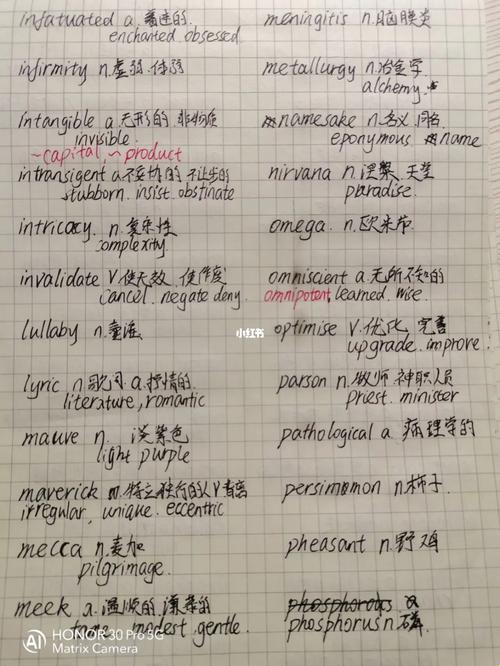 infatuated a.着迷的.
enchanted obsessed
infirmity n.虚弱.体弱
intangible a.无形的.非物质
invisible.
~capital, ~product
intransigent a.不妥协的 不让步的
stubborn. insist. obstinate
intricacy n.复杂性
complexity
invalidate v.使无效.使作废
cancel. negate deny.
lullaby n.童谣
lyric n.歌词.a.抒情的.
literature, romantic
mauve n. 浅紫色
light purple
maverick n.特立独行的人v
irregular, unique. eccentric
mecca n.麦加
pilgrimage.
meek a.温顺的.谦恭的
tame modest gentle.
meningitis n.脑膜炎
metallurgy n.冶金学
alchemy.
namesake n.名义 同名
eponymous name
nirvana n.涅槃.天堂
paradise.
omega. n.欧米茄
omniscient a.无所不知的
omnipotent, learned. wise.
optimise v.优化, 完善
upgrade. improve.
parson n.牧师.神职人员
priest. minister
pathological a. 病理学的
persimmon n.柿子.
pheasant n.野鸡
phosphorus n.磷
小红书
AI HONOR 30 Pro 5G
Matrix Camera